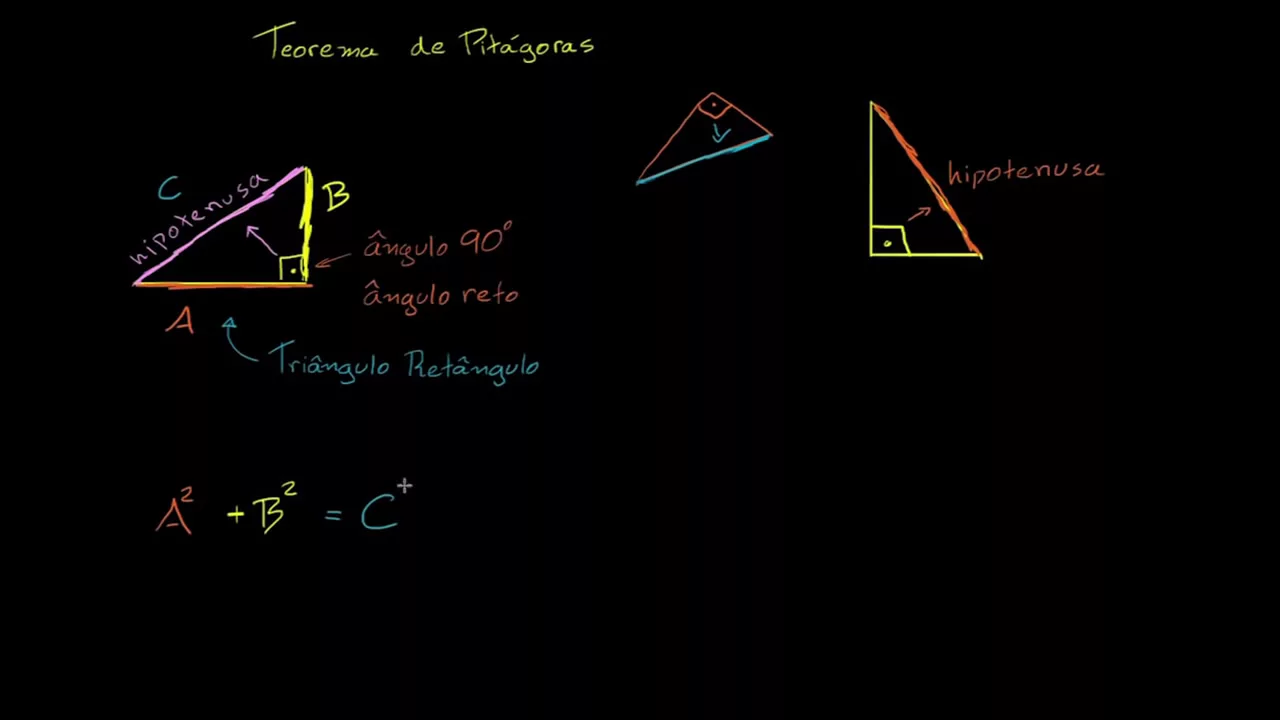 Teorema de Pitágoras
C
hipotenusa
B
ângulo 90°
ângulo reto
A
Triângulo Retângulo
hipotenusa
A² + B² = C